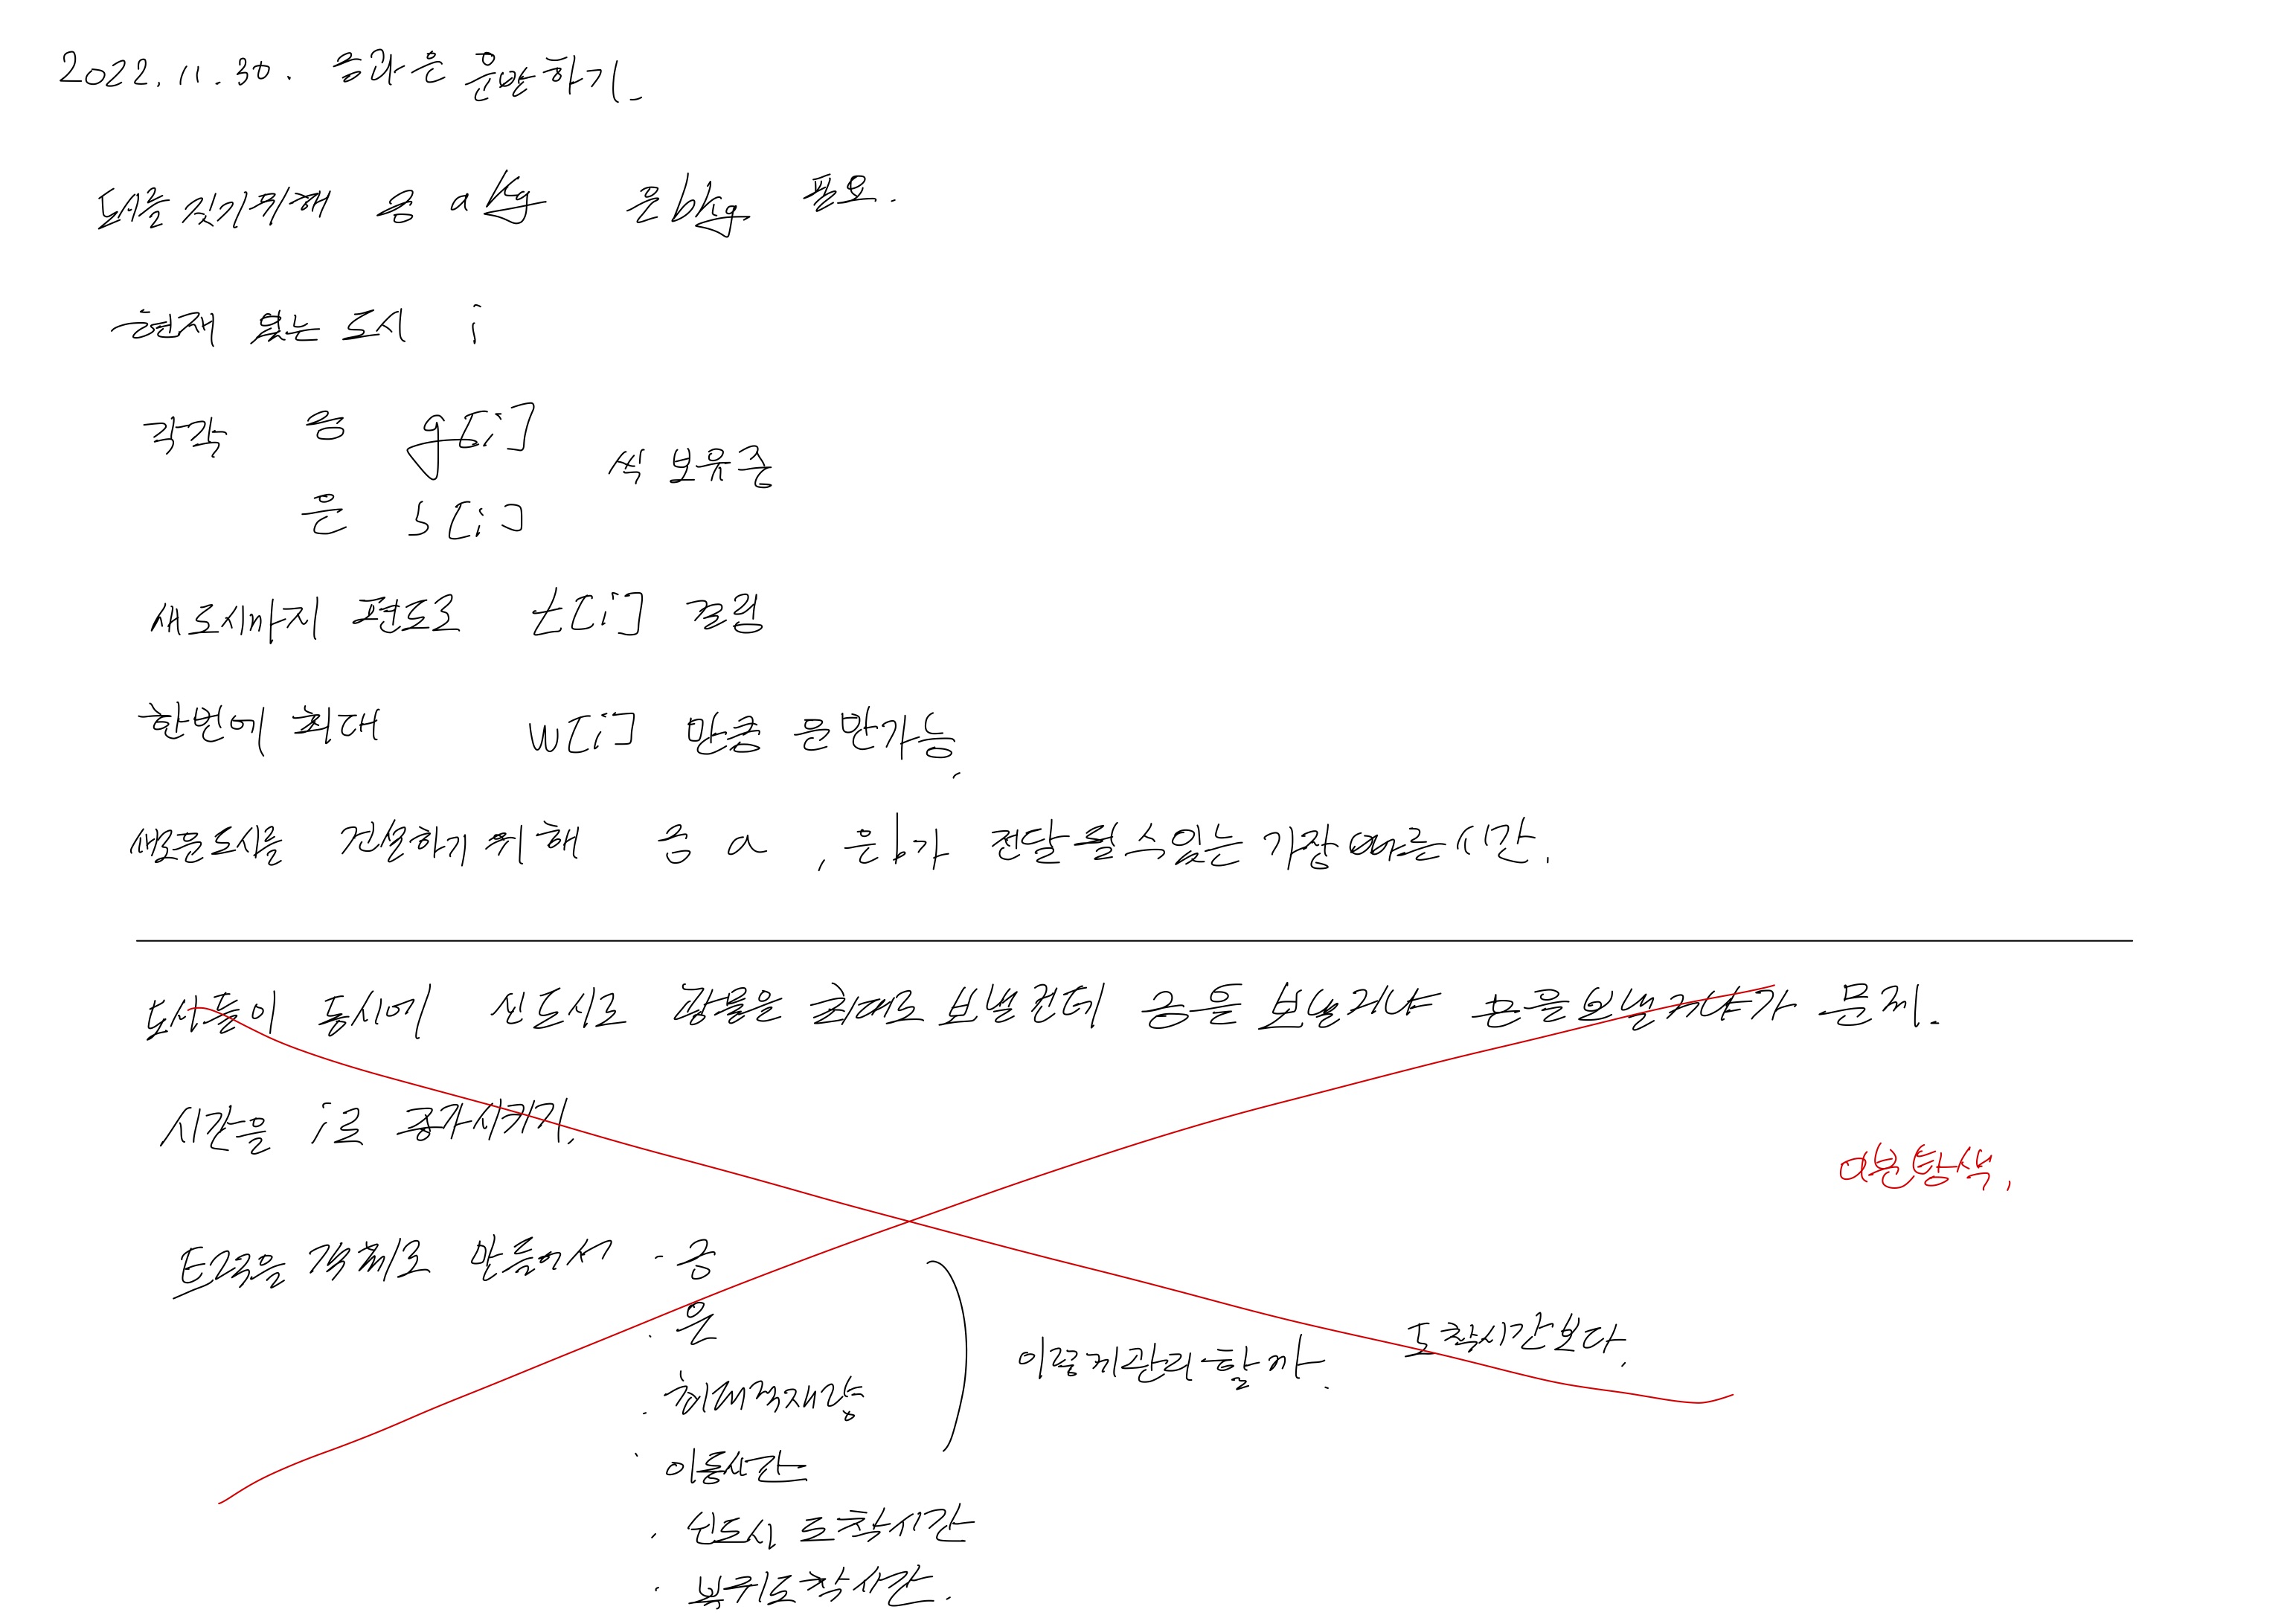 2022.11.30. 금과은 운반하기.
도시를 짓기위해 금 a kg 은 b kg 필요.
현재 있는 도시 i
각각 금 g[i]
은 s[i]
씩 보유중
새로시까지 편도로 t[i] 걸림
한번에 최대 w[i] 만큼 운반가능.
새로운도시를 건설하기 위해 금 a , 은 b가 전달 될 수 있는 가장 빠른 시간.
도시들이 동시에 신도시로 광물을 최대로 보낼건데 금을 보낼거냐 은을 보낼거냐가 문제.
시간을 i로 증가시키기.
이분탐색.
트럭을 객체로 만들어서 · 금
· 은
· 최대적재량
· 이동시간
· 신도시 도착시간
· 복귀도착시간.
이렇게관리할까.
도착시간보다.